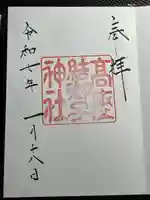 奉拝
高座
結御子
神社
令和七年 一月十八日